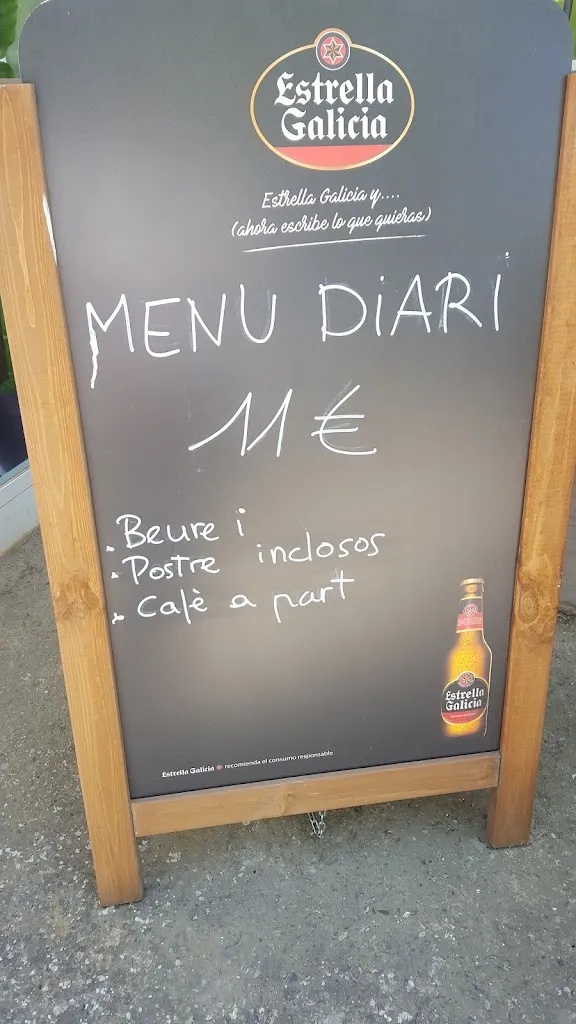 Estrella
Galicia
Estrella Galicia y....
(ahora escribe lo que quieras)
MENU DiARi
11 €
. Beure i
. Postre inclosos
. Cafè a part
Estrella
Galicia
Estrella Galicia recomienda el consumo responsable